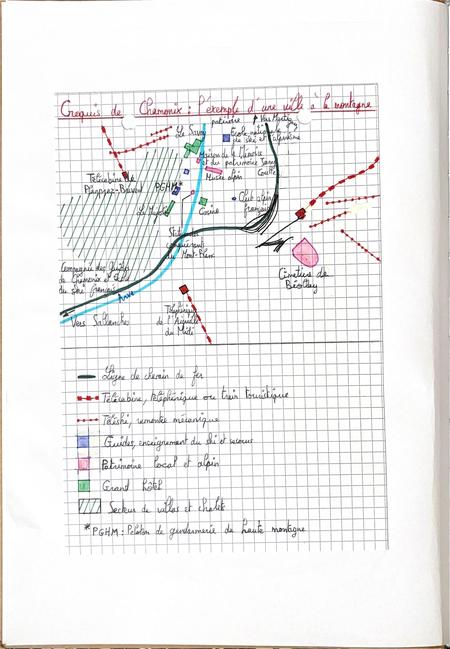 Croquis de Chamonix : l'exemple d'une ville à la montagne
patinoire
Vers Martigny
Le Savoy
École nationale
de ski et alpinisme
Maison de la Mémoire
et du patrimoine Janny
Couttet
Musée alpin
Télécabine de
Planpraz-Brévent
PGHM*
Le Majestic
Casino
Club alpin
français
Statue des
conquérants
du Mont-Blanc
Compagnie des Guides
de Chamonix et École
du ski français
Cimetière de
Biollay
Arve
Vers Sallanches
Téléphérique
de l'Aiguille
du Midi
Ligne de chemin de fer
Télécabine, téléphérique ou train touristique
Téléski, remontée mécanique
Guides, enseignement du ski et secours
Patrimoine local et alpin
Grand hôtel
Secteur de villas et chalets
*PGHM : Peloton de gendarmerie de haute montagne